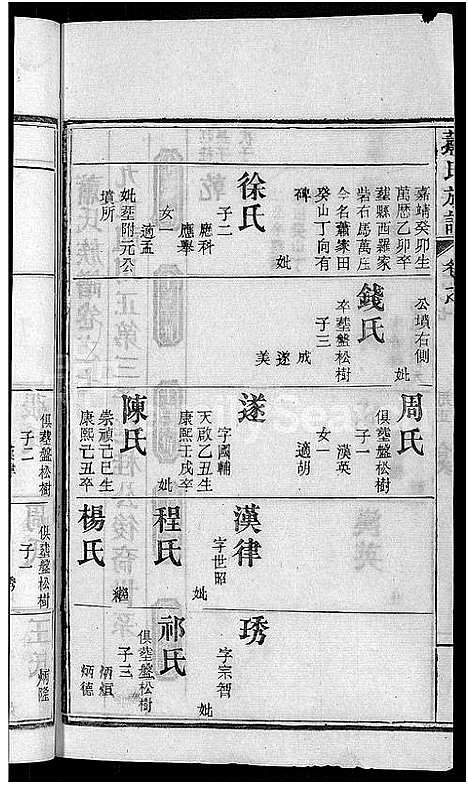 蕭氏族譜
嘉靖癸卯生
萬曆乙卯卒
葬縣西羅家
砦石馬萬庄
今名蕭家田
癸山丁向有
碑
妣
徐氏
子二
應科
應舉
女一
適孟
妣葬附元公
墳所
公墳右側
妣
錢氏
卒葬盤松樹
子三
成
遂
美
周氏
俱葬盤松樹
子一
漢英
女一
適胡
遂
字國輔
天啟乙丑生
康熙壬戌卒
妣
陳氏
崇禎己巳生
康熙己丑卒
漢律
字世昭
妣
程氏
繼
楊氏
琇
字宗智
妣
祁氏
俱葬盤松樹
子三
炳
炳德
俱葬盤松樹
子二
俱葬盤松樹
子一
琇
炳隆